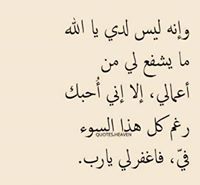 وإنه ليس لدي يا الله
ما يشفع لي من
أعمالي، إلا إني أُحبك
رغم كل هذا السوء
QUOTES.HEAVEN
فيّ، فاغفرلي يارب.